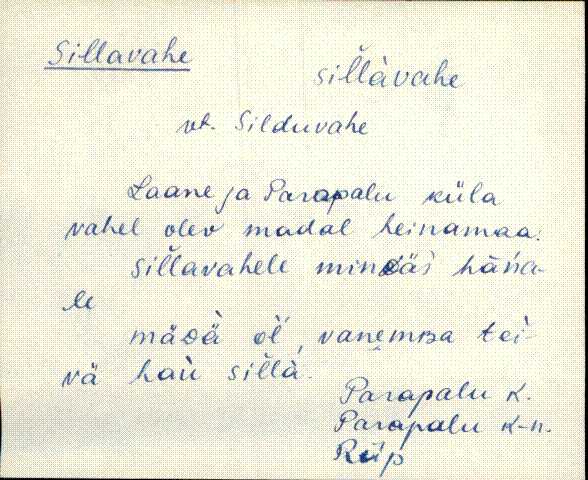 Sillavahe
sillàvahe
vt. Silduvahe
Laane ja Parapalu küla
vahel olev madal heinamaa.
sillavahele
le
vanemba tei-
vä sillà.
Parapalu k.
Parapalu k-n.
Räp